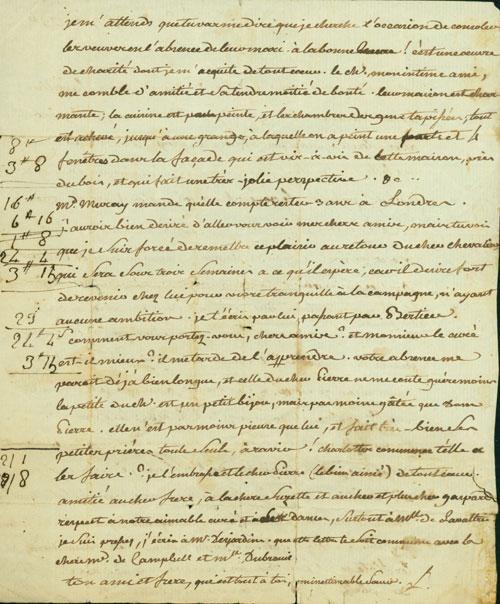 je m'attends que tu vas me dire que je cherche l'occasion de consoler
les veuves en l'absence de leur mari. à la bonne heure ! c'est une œuvre
de charité dont je m'acquite de tout cœur. le chr. mon intime ami,
me comble d'amitié et sa tendre moitié de bonté. leur maison est char
mante ; la cuisine est peinte, et les chambres des gens tapissées, tout
est achevé, jusqu'à une grange, à laquelle on a peint une porte et 4
fenêtres dans la façade qui est vis-à-vis de cette maison, près
du bois, et qui fait une très-jolie perspective. &c..
Mr. Murray mande qu'elle compte rester 3 ans à Londres.
j'aurois bien désiré d'aller vous voir mes chers amis, mais tu vois
que je suis forcé de remettre ce plaisir au retour du cher chevalier
qui sera sous trois semaines à ce qu'il espère, car il désire fort
de revenir chez lui pour vivre tranquille à la campagne, n'ayant
aucune ambition. je t'écris par lui, passant par Bertier.
comment vous portez-vous, chers amis ? et monsieur le curé
est-il mieux ? il me tarde de l'apprendre. votre absence me
paroit déjà bien longue, et celle du cher Pierre ne me coute guères moins
la petite du chr. est un petit bijou, mais pas moins gâtée que Dom
Pierre. elle n'est pas moins pieuse que lui, et fait très-bien ses
petites prières toute seule, à ravir ! charlotte commence t'elle à
les faire ? je l'embrasse et le cher Pierre (le bien aimé) de tout cœur.
amitié au cher frere, à la chere Suzette et au cher et plus cher gaspard
respect à notre aimable curé et à dames, surtout à Mlle. de Lanaudiere
je suis pressé, j'écris à Mr. Desjardins. que cette lettre te soit commune avec la
chere me. de Campbell et mlle Dubreuil
ton ami et frere, qui est tout à toi,
8# 
3# 8
16#
6# 16
1# 8
24 4
3# 15
29
24# 4s
3# 15
211
8